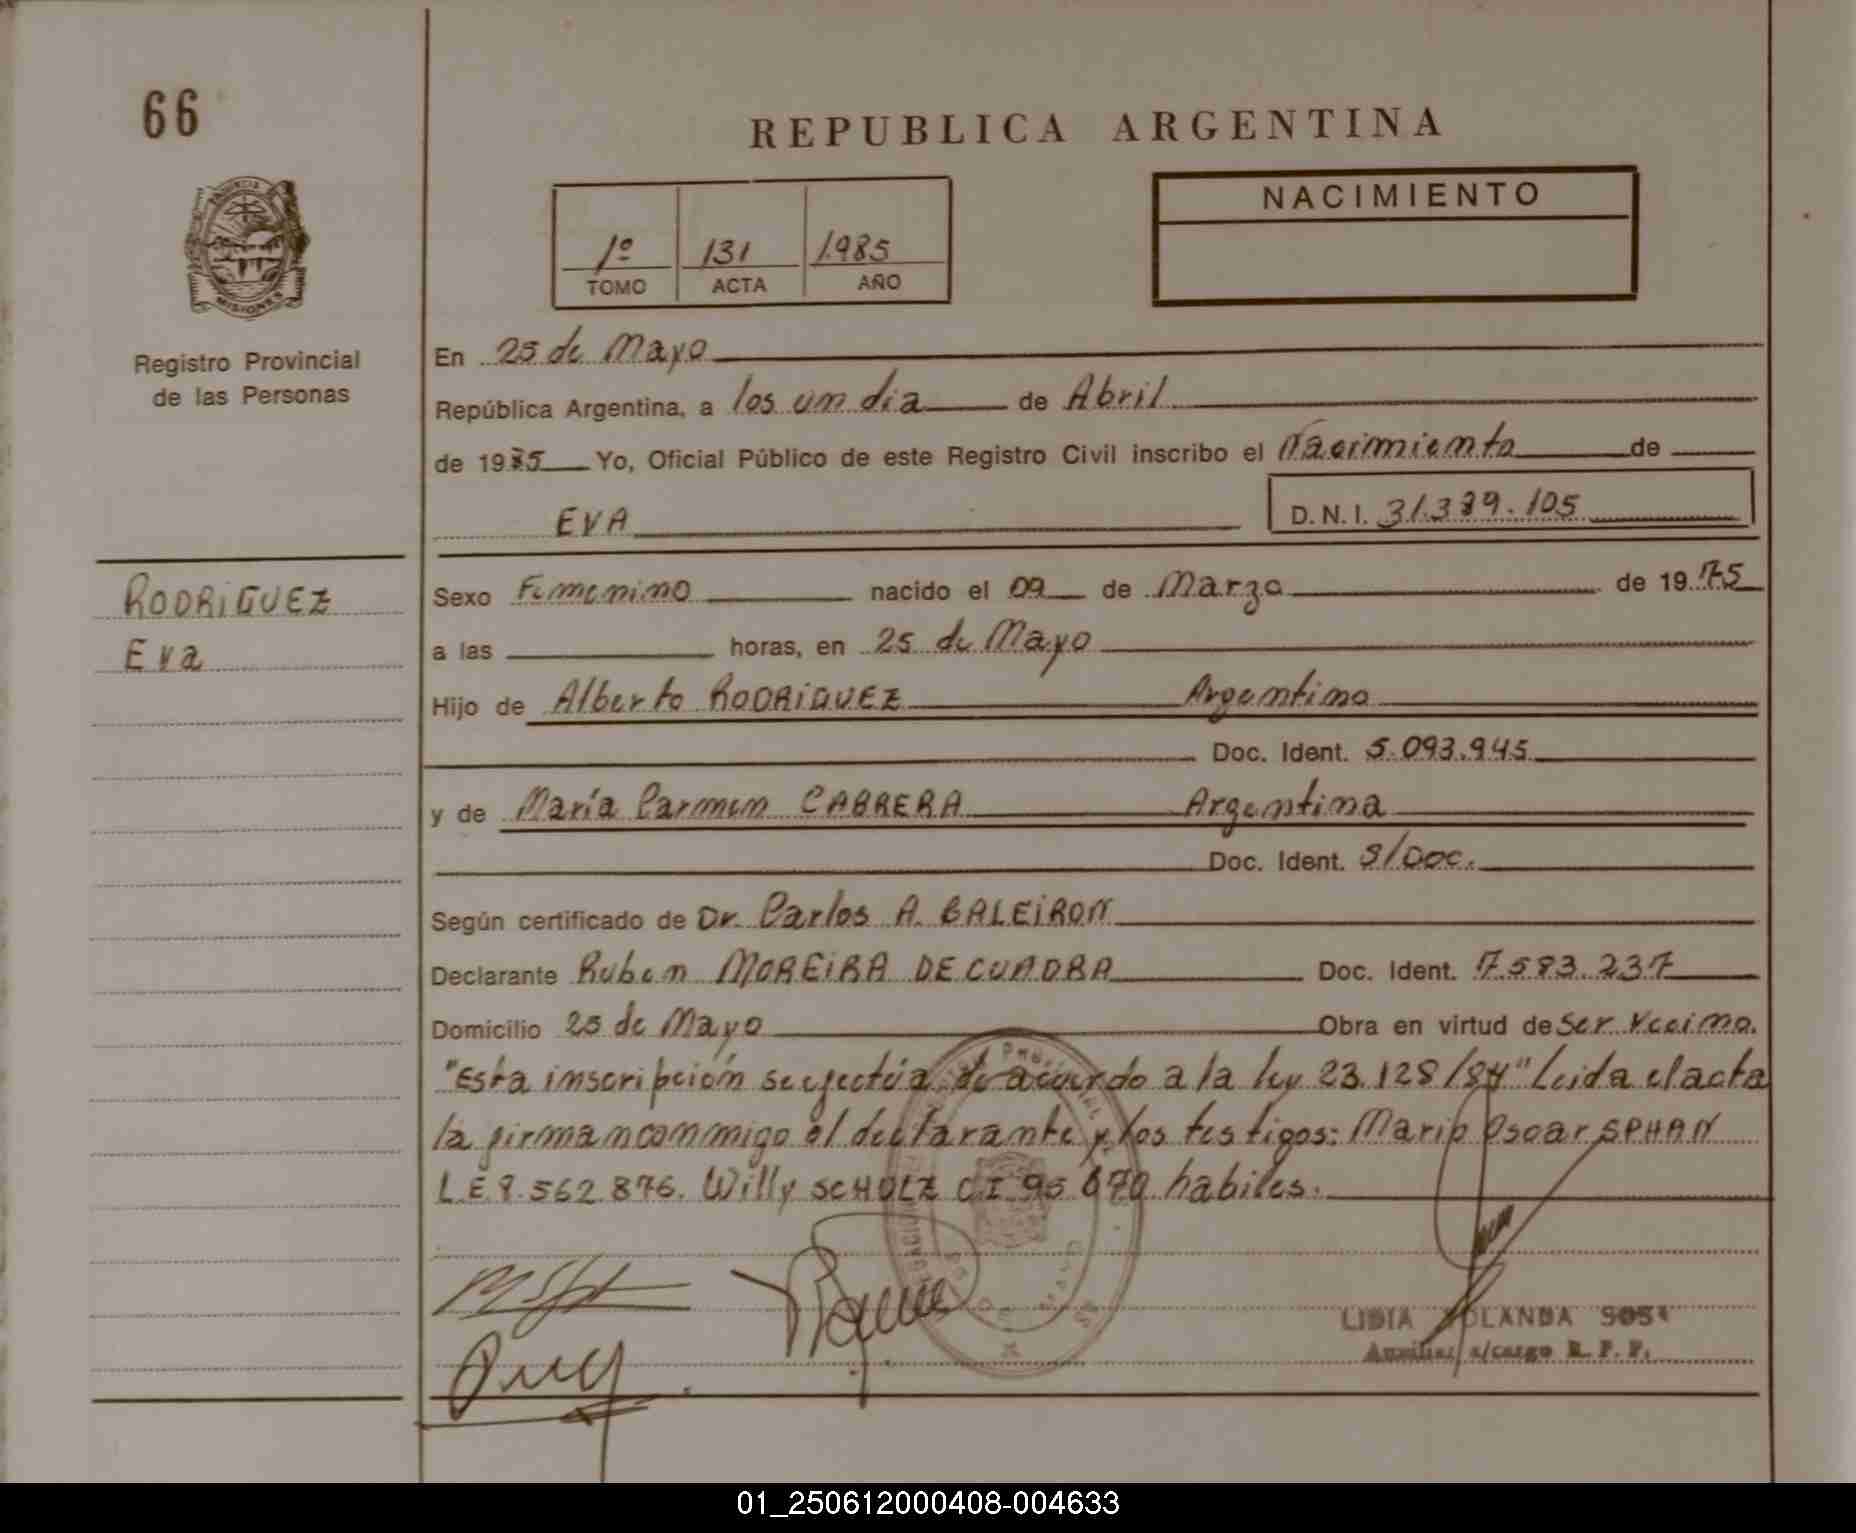 66
REPUBLICA ARGENTINA
NACIMIENTO
1º 131 1.985
TOMO ACTA AÑO
PROVINCIA
MISIONES
Registro Provincial
de las Personas
En 25 de Mayo
República Argentina, a los un dia de Abril
de 1985 Yo, Oficial Público de este Registro Civil inscribo el Nacimiento de
EVA
D.N.I. 31.339.105
RODRIGUEZ
Eva
Sexo Femenino nacido el 09 de Marzo de 1975
a las horas, en 25 de Mayo
Hijo de Alberto RODRIGUEZ Argentino
Doc. Ident. 5.093.945
y de María Carmen CABRERA Argentina
Doc. Ident. S/Doc.
Según certificado de Dr. Carlos A. BALEIRON
Declarante Ruben MOREIRA DE CUADRA Doc. Ident. 7.583.237
Domicilio 25 de Mayo Obra en virtud de ser Vecino.
"Esta inscripción se efectúa de acuerdo a la ley 23.128/84" Leida el acta
la firman conmigo el declarante y los testigos: Mario Oscar SPHAN
L.E 8.562.876. Willy SCHOLZ C.I 95.670 habiles.
LIDIA YOLANDA SOSA
Auxiliar a/cargo R. P. P.
01_250612000408-004633